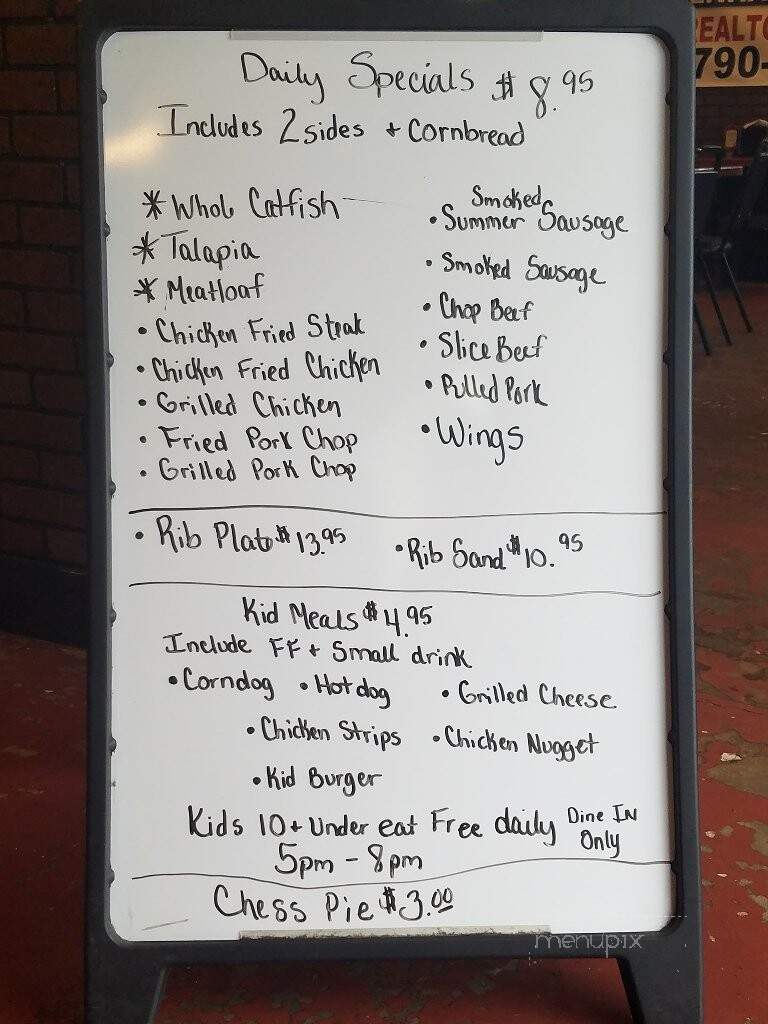 Daily Specials $8.95
Includes 2 sides + Cornbread
* Whole Catfish
* Talapia
* Meatloaf
• Chicken Fried Steak
• Chicken Fried Chicken
• Grilled Chicken
• Fried Pork Chop
• Grilled Pork Chop
Smoked
• Summer Sausage
• Smoked Sausage
• Chop Beef
• Slice Beef
• Pulled Pork
• Wings
• Rib Plate $13.95
• Rib Sand $10.95
Kid Meals $4.95
Include FF + Small drink
• Corndog • Hotdog • Grilled Cheese
• Chicken Strips • Chicken Nugget
• Kid Burger
Kids 10 + Under eat Free daily Dine IN Only
5pm - 8pm
Chess Pie $3.00
REALTO
790-
menupix